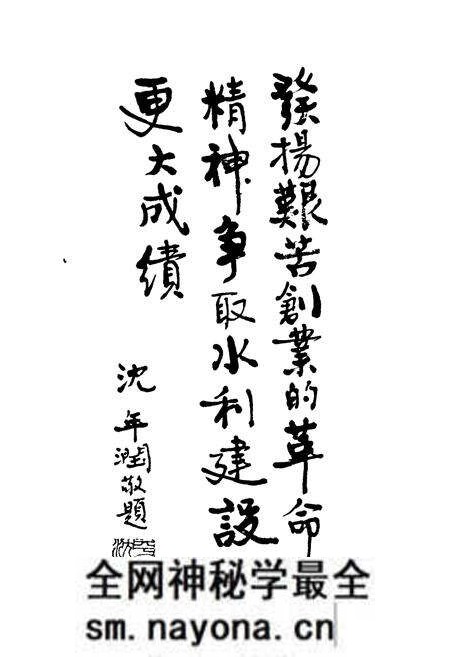 發揚艱苦創業的革命
精神争取水利建設
更大成績
沈年潤敬題
全网神秘学最全
sm.nayona.cn